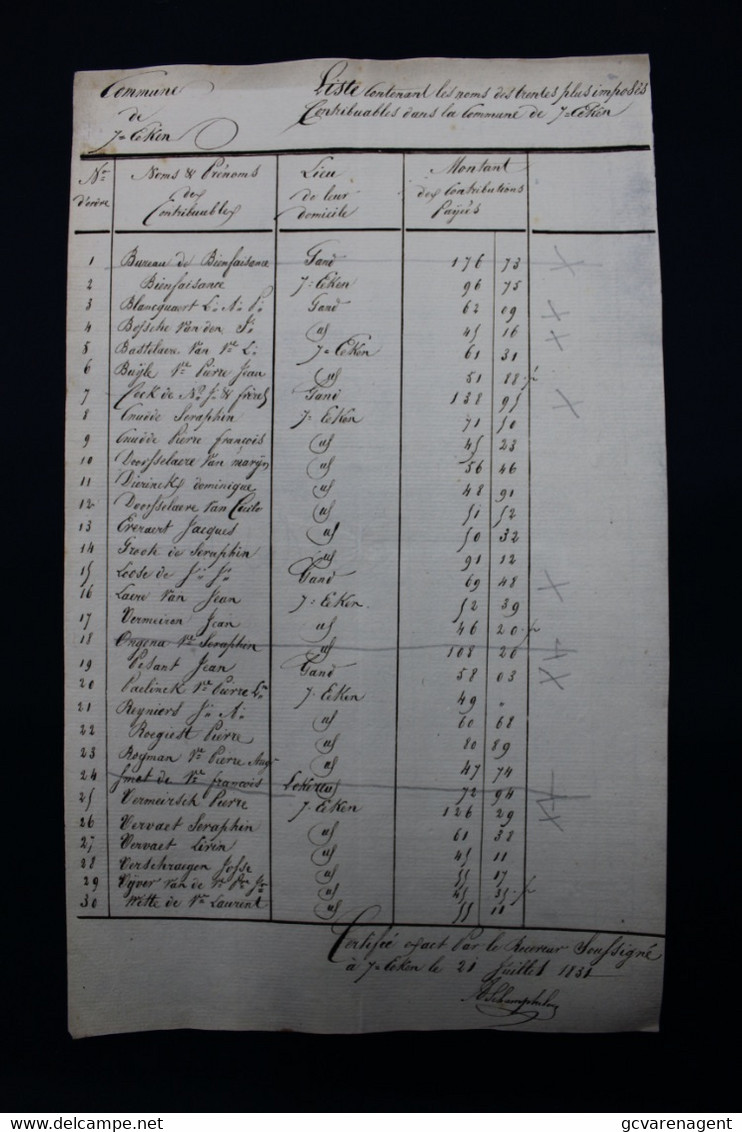 Commune
de
7=Eeken
Liste Contenant les noms des trentes plus imposés
Contribuables dans la Commune de 7=Eeken
Nos d'ordre | Noms & Prénoms des Contribuables | Lieu de leur domicile | Montant des Contributions Payées
1 Bureau de Bienfaisance Gand 176 73
2 Bienfaisance 7=Eeken 96 75
3 Blancquaert L: A: P: Gand 62 09
4 Bossche Van den J: id 45 16
5 Bastelaere Van Ve L: 7=Eeken 61 31
6 Buyle Ve Pierre Jean id 51 88
7 Cock de No J: & frères Gand 138 95
8 Cnudde Seraphin 7=Eeken 71 50
9 Cnudde Pierre François id 45 23
10 Doorsselaere Van Maryn id 56 46
11 Dierinck dominique id 48 91
12 Doorsselaere Van id 51 52
13 Everaert Jacques id 50 32
14 Groote de Seraphin id 91 12
15 Loose de J: J: Gand 69 48
16 Laere Van Jean 7=Eeken 52 39
17 Vermeiren Jean id 46 20
18 Ongena Ve Seraphin id 108 20
19 Pesant Jean Gand 58 03
20 Paelinck Ve Pierre Ln 7=Eeken 49 "
21 Reyniers J: A: id 60 68
22 Roegiest Pierre id 80 89
23 Royman Ve Pierre Aug id 47 74
24 Smet de Ve françois Lokeren 72 94
25 Vermeirsch Pierre 7=Eeken 126 29
26 Vervaet Seraphin id 61 38
27 Vervaet Livin id 45 11
28 Verschraegen Josse id 55 17
29 Vyver Van de Ve Pre Jn id 45 35
30 Witte de Ve Laurent id 55 11
Certifié exact Par le Receveur Soussigné
à 7=Eeken le 21 Juillet 1831
www.delcampe.net
gcvarenagent